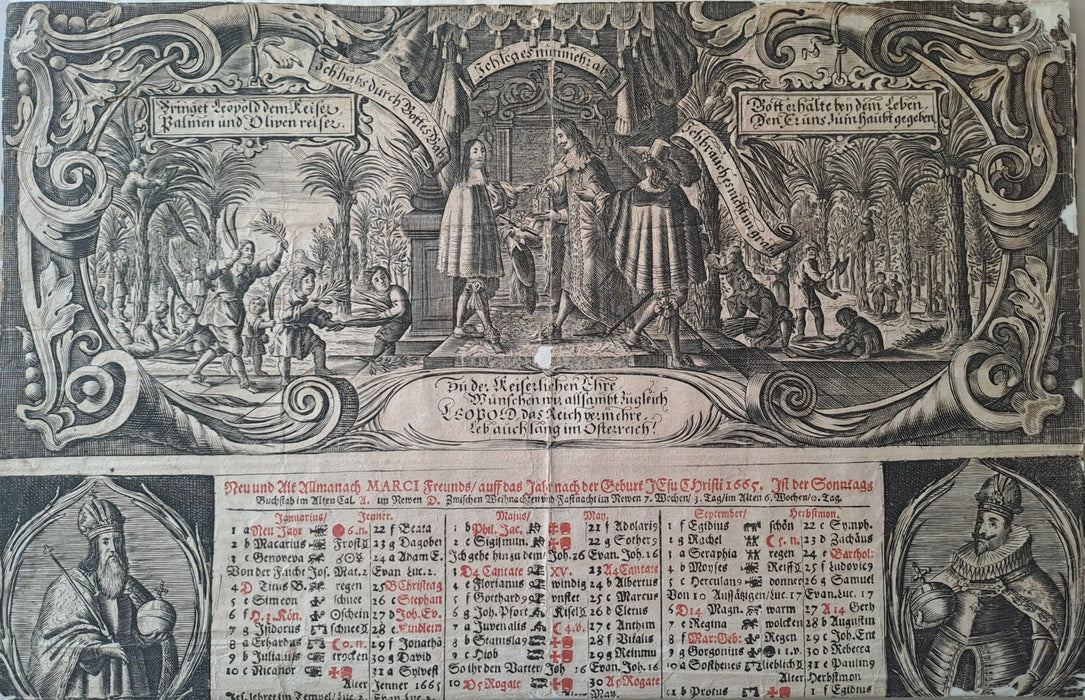 Ich habs durch Gottes Gab
Ich leg es nunmehr ab.
Ich brauch es nicht in grab
Bringet Leopold dem Keiser,
Palmen und Oliven reiser.
Gott erhalte bey dem Leben,
Den Er uns zum haubt gegeben
Zu der Keiserlichen Ehre
Wünschen wir allsambt zugleich
LEOPOLD das Reich vermehre,
Leb auch lang im Osterreich!
Neu und Alt Allmanach MARCI Freunds/ auff das Jahr nach der Geburt JEsu CHristi 1665. Ist der Sonntags
Buchstab im Alten Cal. A. im Newen D. Zwischen Weihnachten und Fastnacht im Newen 7. Wochen/ 3. Tag/ im Alten 6. Wochen/ 0. Tag.
Januarius/ Jenner.
1 a Neu Jahr 6. n. 22 f Beata
2 b Macarius Frost 23 g Dagobei
3 c Genoveva 24 a Adam E.
Von der Fucht Jos. Mat. 2 Evan Luc. 2.
4 D Titus B. regen 25 B Christag
5 e Simeon schnee 26 c Stephan
6 f H. 3. Kön. schein 27 d Joh. Ev.
7 g Isidorus schnee 28 e Kindlein
8 a Erhardus 0. n. 29 f Jonatha
9 b Julianus trocken 30 g David
10 c Nicanor 31 a Sylvest
Alter Jenner 1665
Jes. lehret im Tempel/ Luc. 2. Evan Luc. 2.
Majus/ May.
1 b Phil. Jac. 21 f Adolaris
2 c Sigismun. 22 g Sother9
Ich gehe hin zu dem/ Joh. 16 Evan. Joh. 16
3 D4 Cantate XV. 23 A4 Cantate
4 e Florianus windig 24 b Albertus
5 f Gothard9 unstet 25 c Marcus
6 g Joh. Pfort Kisel 26 d Cletus
7 a Juvenalis 4. v. 27 e Anthim
8 b Stanisla9 28 f Vitalis
9 c Hiob 29 g Reinmu
So ihr den Vatter/ Joh 16 Evan. Joh. 16
10 D5 Rogate 30 A5 Rogate
May.
September/ Herbstmon.
1 f Egidius schön 22 c Symph.
2 g Rachel 5. n. 23 d Zachäus
3 a Seraphia regen 24 e Barthol:
4 b Moyses Reiff 25 f Ludovic9
5 c Herculan9 donner 26 g Samuel
Von 10 Aussätzigen/ Luc. 17 Evan. Luc. 17
6 D14 Magn. warm 27 A 14 Geth
7 e Regina wolcken 28 b Augustin
8 f Mar: Geb: Regen 29 c Joh. Ent
9 g Gorgonius 1. v. 30 d Rebecca
10 a Sosthenes lieblich 31 e Paulin9
Alter Herbstmon
11 b Protus 1 f Egidius